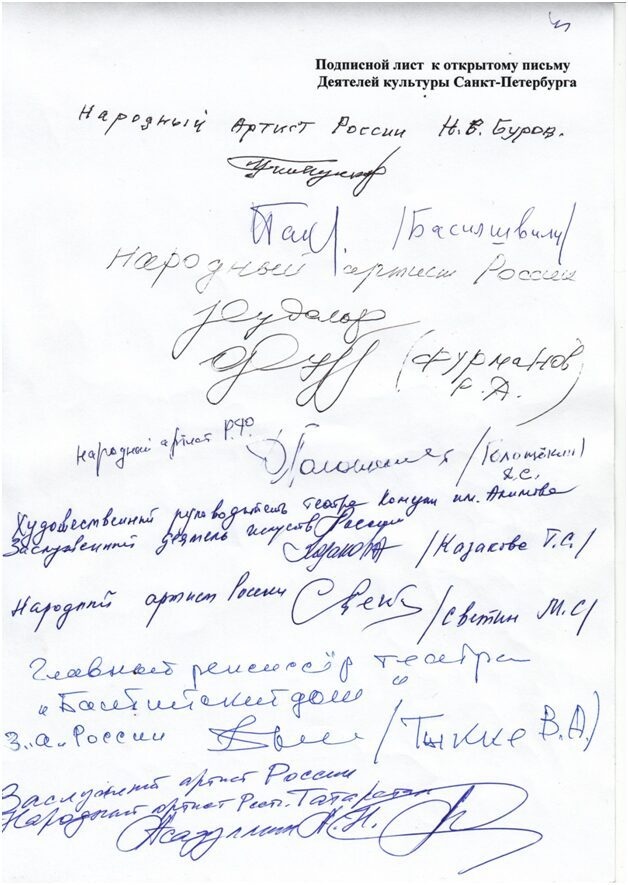 Подписной лист к открытому письму
Деятелей культуры Санкт-Петербурга
Народный Артист России Н.В. Буров.
/Басилашвили/
Народный артист России
Рудольф
(Фурманов
Р.Д.)
Народный артист Р.Ф.
/Голощёкин
Д.С./
Художественный руководитель театра Комедии им. Акимова
Заслуженный деятель искусств России
/Казакова Т.С./
Народный артист России
/Светин М.С/
Главный режиссёр театра
"Балтийский дом"
З.а. России /Тыкке В.А./
Заслуженный артист России
Народный артист Респ. Татарстан